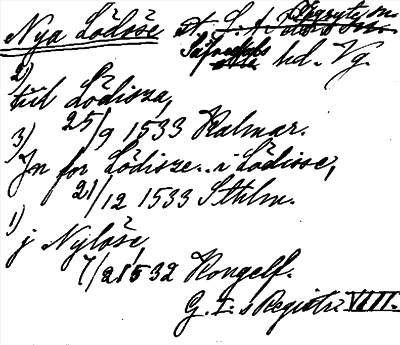 Nya Lödöse st.
Sävedals hd. Vg.
2)
till Lödisza,
25/9 1533 Kalmar.
3)
Jn for Lödisze.. i Lödisse,
21/12 1533 Sthlm.
1)
j Nylöse,
7/2 1532 Kongelf.
G. I:s Registr. VIII.